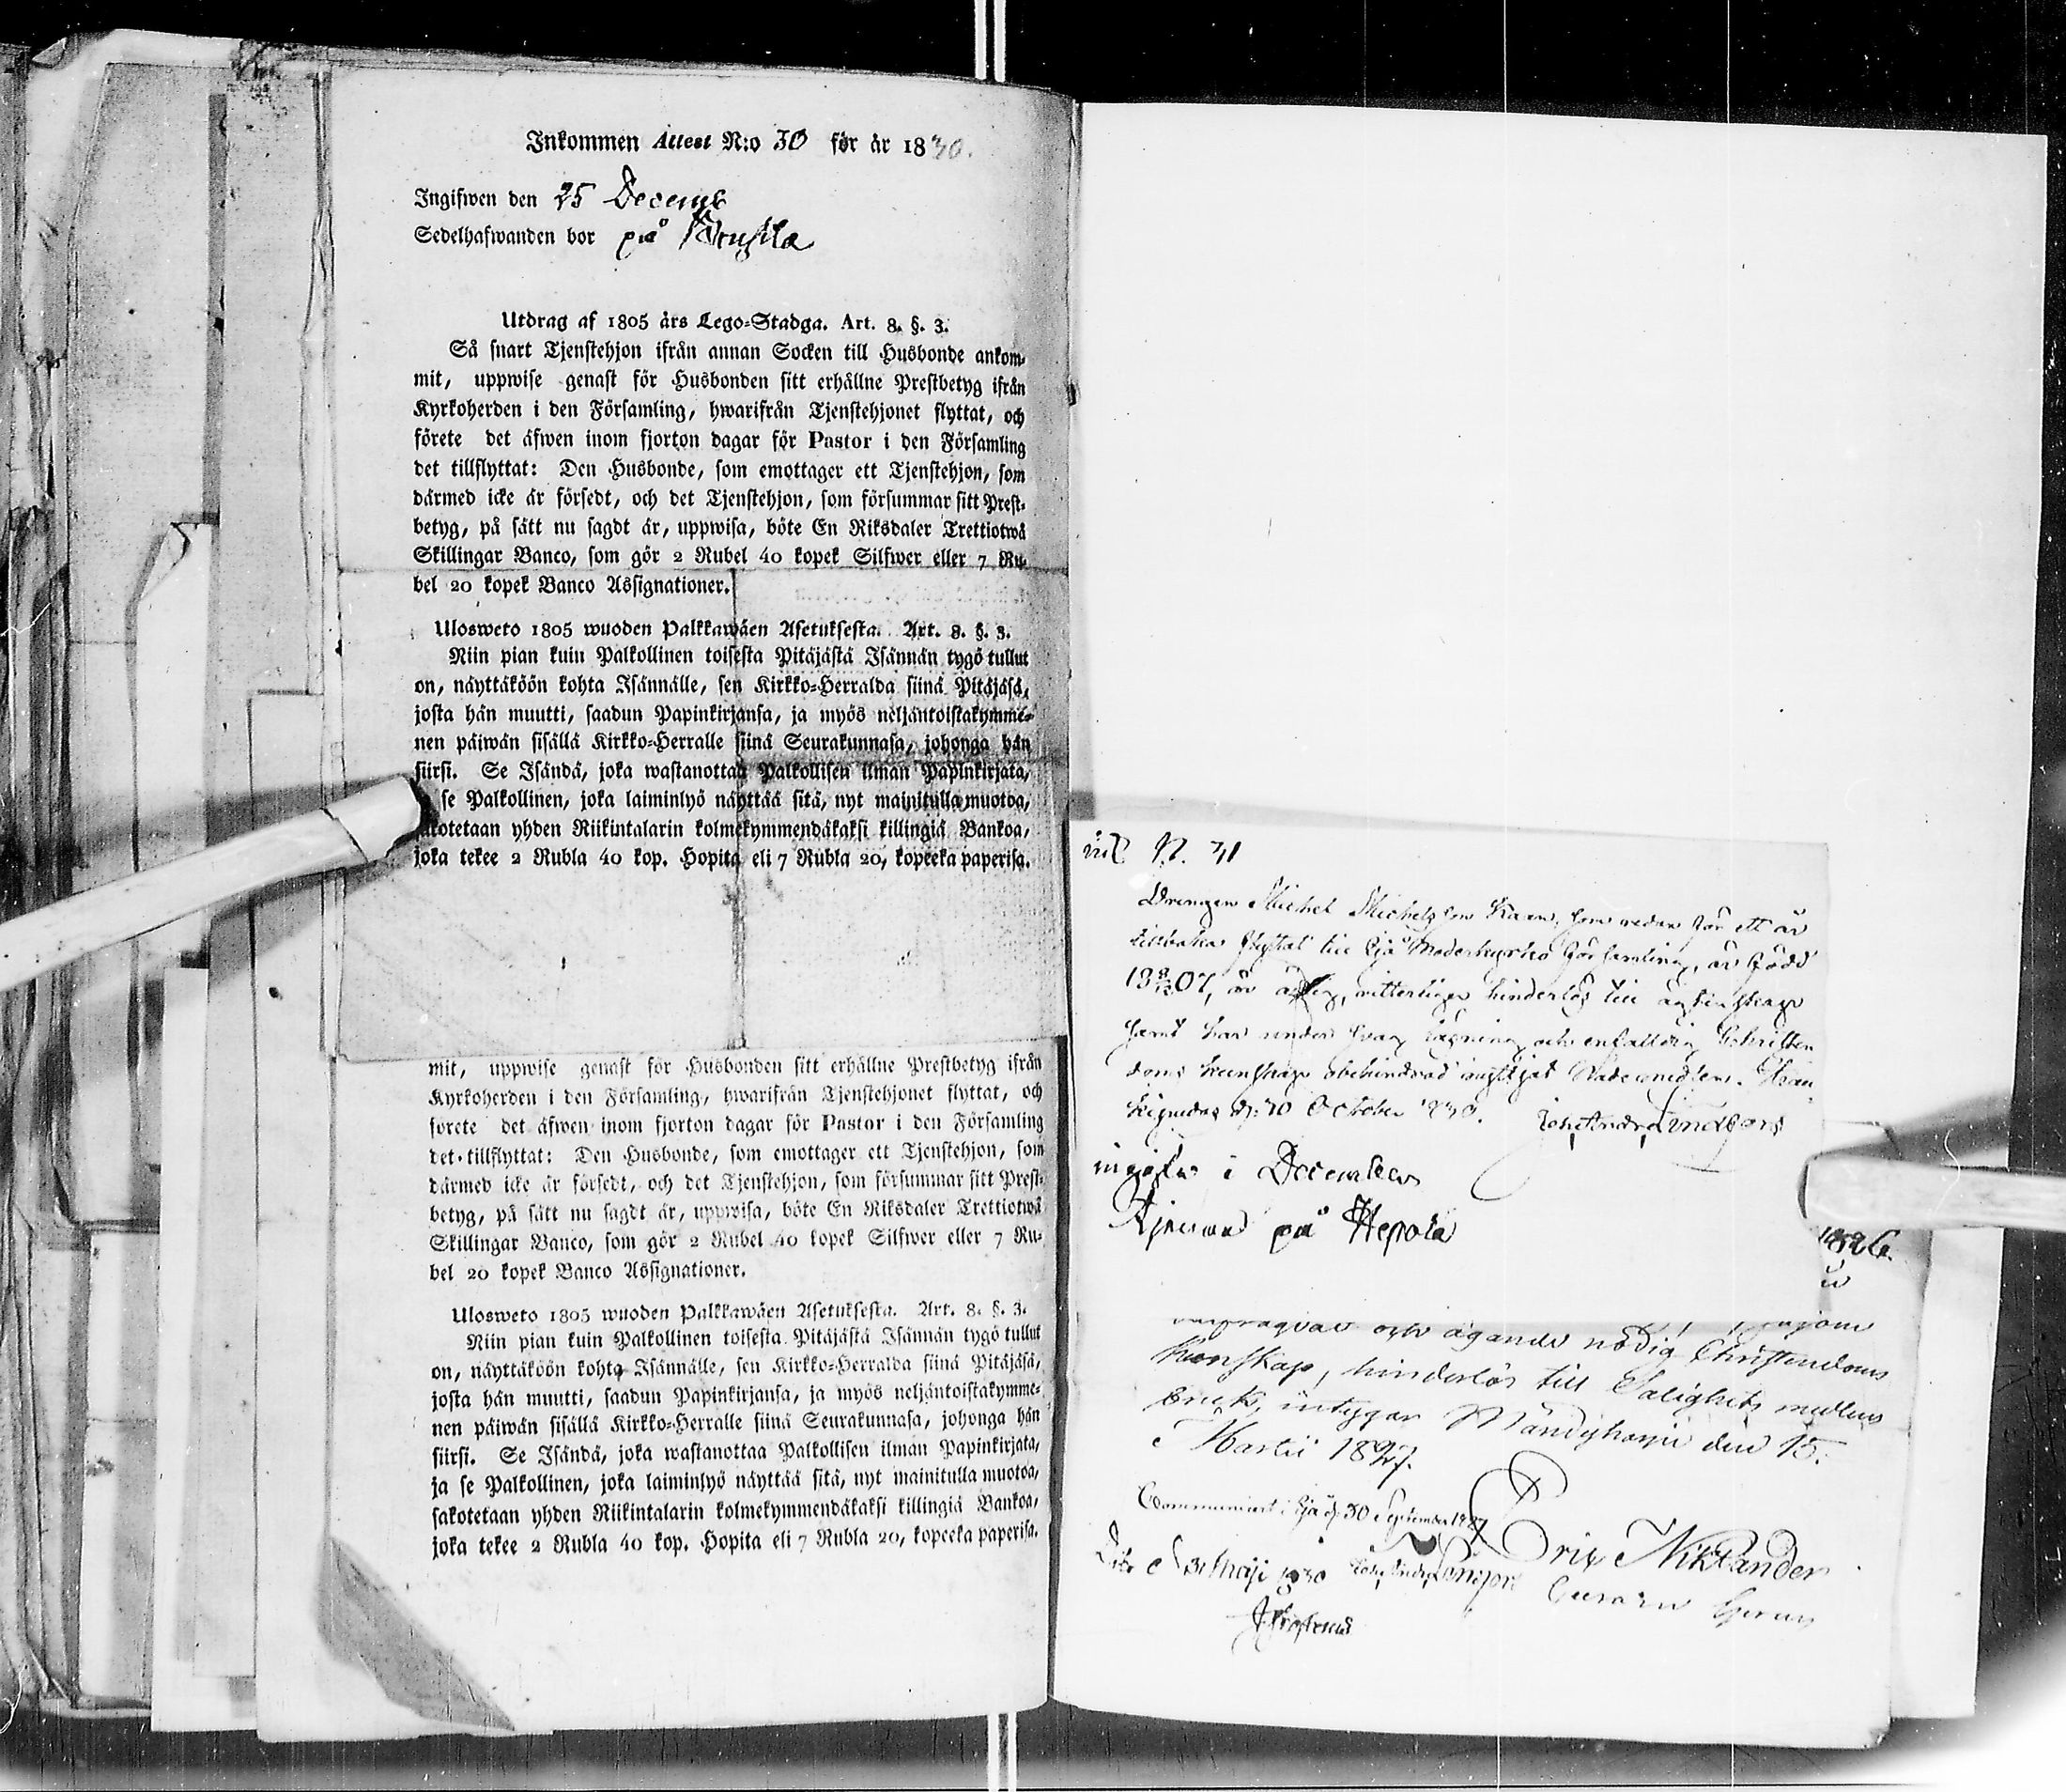 Inkommen Attest N:o 30 för år 1830.
Ingifwen den 25 Decemb
Sedelhafwanden bor på
Utdrag af 1805 års Lego-Stadga. Art. 8. §. 3.
Så snart Tjenstehjon ifrån annan Socken till Husbonde ankom-
mit, uppwise genast för Husbonden sitt erhållne Prestbetyg ifrån
Kyrkoherden i den Församling, hwarifrån Tjenstehjonet flyttat, och
förete det äfwen inom fjorton dagar för Pastor i den Församling
det tillflyttat: Den Husbonde, som emottager ett Tjenstehjon, som
därmed icke är försedt, och det Tjenstehjon, som försummar sitt Prest-
betyg, på sätt nu sagdt är, uppwisa, böte En Riksdaler Trettiotwå
Skillingar Banco, som gör 2 Rubel 40 kopek Silfwer eller 7 Ru-
bel 20 kopek Banco Assignationer.
Ulosweto 1805 wuoden Palkkawäen Asetuksesta. Art. 8. §. 3.
Niin pian kuin Palkollinen toisesta Pitäjästä Isännän tygö tullut
on, näyttäköön kohta Isännälle, sen Kirkko-Herralda siinä Pitäjäsä,
josta hän muutti, saadun Papinkirjansa, ja myös neljäntoistakymme-
nen päiwän sisällä Kirkko-Herralle siinä Seurakunnasa, johonga hän
siirsi. Se Isändä, joka wastanottaa Palkollisen ilman Papinkirjata,
se Palkollinen, joka laiminlyö näyttää sitä, nyt mainitulla muotoa,
sakotetaan yhden Riikintalarin kolmekymmendäkaksi killingiä Bankoa,
joka tekee 2 Rubla 40 kop. Hopita eli 7 Rubla 20, kopeeka paperisa.
mit, uppwise genast för Husbonden sitt erhållne Prestbetyg ifrån
Kyrkoherden i den Församling, hwarifrån Tjenstehjonet flyttat, och
förete det äfwen inom fjorton dagar för Pastor i den Församling
det tillflyttat: Den Husbonde, som emottager ett Tjenstehjon, som
därmed icke är försedt, och det Tjenstehjon, som försummar sitt Prest-
betyg, på sätt nu sagdt är, uppwisa, böte En Riksdaler Trettiotwå
Skillingar Banco, som gör 2 Rubel 40 kopek Silfwer eller 7 Ru-
bel 20 kopek Banco Assignationer.
Ulosweto 1805 wuoden Palkkawäen Asetuksesta. Art. 8. §. 3.
Niin pian kuin Palkollinen toisesta Pitäjästä Isännän tygö tullut
on, näyttäköön kohta Isännälle, sen Kirkko-Herralda siinä Pitäjäsä,
josta hän muutti, saadun Papinkirjansa, ja myös neljäntoistakymme-
nen päiwän sisällä Kirkko-Herralle siinä Seurakunnasa, johonga hän
siirsi. Se Isändä, joka wastanottaa Palkollisen ilman Papinkirjata,
ja se Palkollinen, joka laiminlyö näyttää sitä, nyt mainitulla muotoa,
sakotetaan yhden Riikintalarin kolmekymmendäkaksi killingiä Bankoa,
joka tekee 2 Rubla 40 kop. Hopita eli 7 Rubla 20, kopeeka paperisa.
N. 31
Drengen Michel Michelsson som redan för ett år
tillbaka flyttat till Eja Moderkyrko församling, är född
18 8/12 07, är ärlig, hinderlös till ägtenskap
samt har under svag läsning och enfaldig Christen
doms kunskap obehindrad Nådemedlen.
d. 30 October 1830. Joh. Andr. Lindfors
i December
på Hepola
och ägande nödig Christendoms
kunskap, hinderlös till Salighets medlens
bruk, intygar Mändyharju den 15.
Martii 1827.
Communicerat i Eja d. 30 September 1827
Eric Nikander
d. 31 Maji 1830